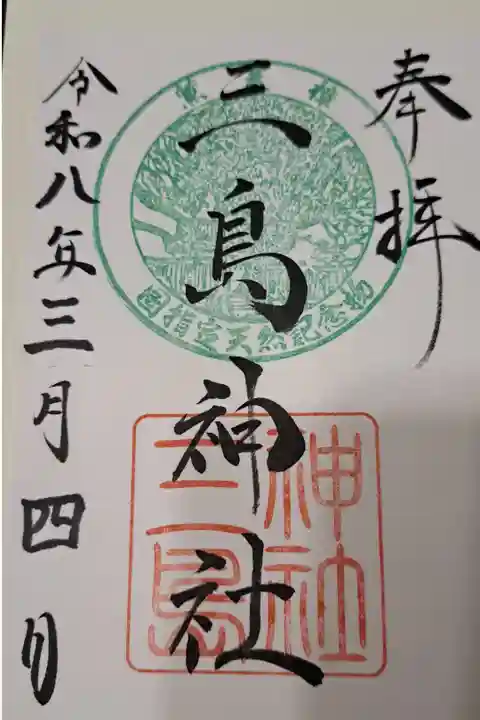 奉拝
三島神社
令和八年三月四日
薫蓋樟
国指定天然記念物
三島
神社